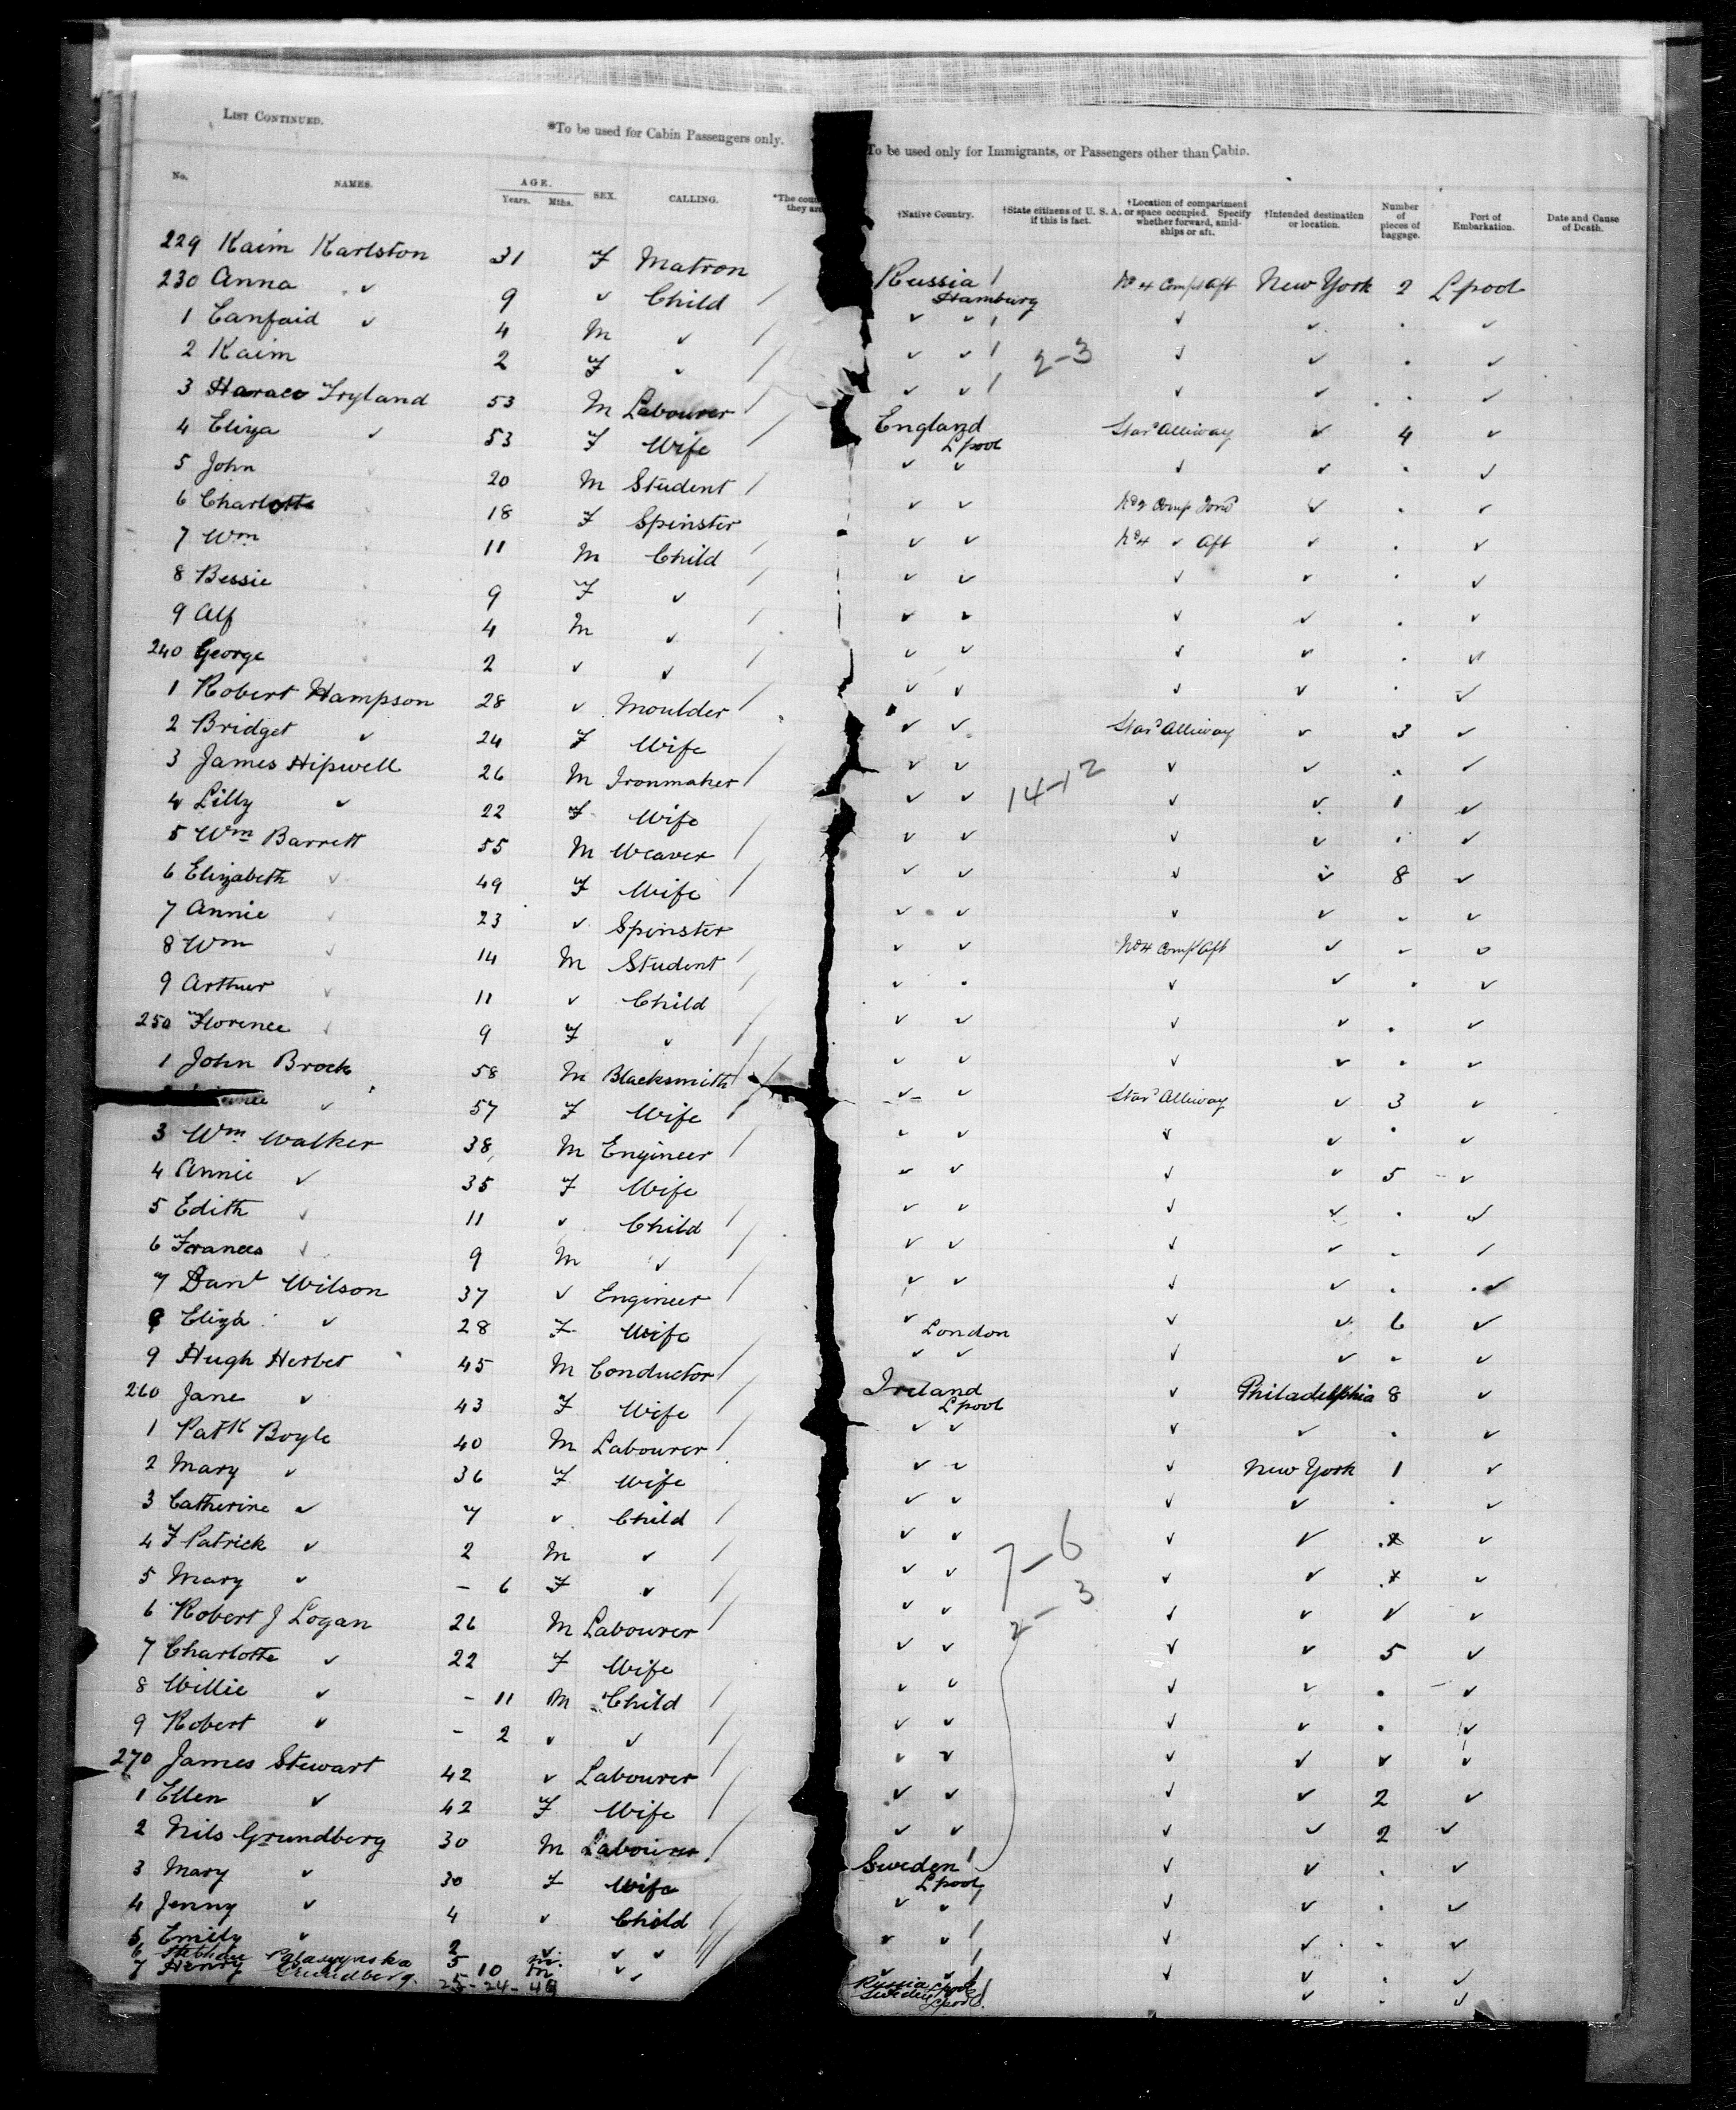 LIST CONTINUED.
*To be used for Cabin Passengers only.
To be used only for Immigrants, or Passengers other than Cabin.
No. NAMES. AGE. Years. Mths. SEX. CALLING. *The coun they are †Native Country. †State citizens of U. S. A. if this is fact. †Location of compartment or space occupied. Specify whether forward, amidships or aft. †Intended destination or location. Number of pieces of baggage. Port of Embarkation. Date and Cause of Death.
229 Kaim Karlston 31 F Matron / Russia Hamburg / No 4 Compt Aft New York 2 L'pool
230 Anna ✓ 9 ✓ Child / ✓ ✓ / ✓ ✓ . ✓
1 Canfaid ✓ 4 M ✓ / ✓ ✓ / 2-3 ✓ ✓ . ✓
2 Kaim 2 F ✓ / ✓ ✓ / ✓ ✓ . ✓
3 Fryland 53 M Labourer / England L'pool Star'd Alliway ✓ 4 ✓
4 Eliza ✓ 53 F Wife / ✓ ✓ ✓ ✓ . ✓
5 John 20 M Student / ✓ ✓ No 2 Comp Forwd ✓ . ✓
6 Charlotte 18 F Spinster ✓ ✓ No 4 ✓ Aft ✓ . ✓
7 Wm 11 M Child / ✓ ✓ ✓ ✓ . ✓
8 Bessie 9 F ✓ / ✓ ✓ ✓ ✓ . ✓
9 Alf 4 M ✓ / ✓ ✓ ✓ ✓ . ✓
240 George 2 ✓ ✓ / ✓ ✓ ✓ ✓ . ✓
1 Robert Hampson 28 ✓ Moulder / ✓ ✓ Star'd Alliway ✓ 3 ✓
2 Bridget ✓ 24 F Wife ✓ ✓ ✓ ✓ . ✓
3 James Hipwell 26 M Ironmaker / ✓ ✓ 14-12 ✓ ✓ 1 ✓
4 Lilly ✓ 22 F Wife ✓ ✓ ✓ ✓ . ✓
5 Wm Barrett 55 M Weaver / ✓ ✓ ✓ ✓ 8 ✓
6 Elizabeth ✓ 49 F Wife / ✓ ✓ ✓ ✓ . ✓
7 Annie ✓ 23 ✓ Spinster ✓ ✓ No 4 Compt Aft ✓ . ✓
8 Wm ✓ 14 M Student / ✓ . ✓ ✓ . ✓
9 Arthur ✓ 11 ✓ Child / ✓ ✓ ✓ ✓ . ✓
250 Florence ✓ 9 F ✓ / ✓ ✓ ✓ ✓ . ✓
1 John Brock 58 M Blacksmith / ✓ ✓ Star'd Alliway ✓ 3 ✓
✓ 57 F Wife / ✓ ✓ ✓ ✓ . ✓
3 Wm Walker 38 M Engineer / ✓ ✓ ✓ ✓ 5 ✓
4 Annie ✓ 35 F Wife ✓ ✓ ✓ ✓ . ✓
5 Edith ✓ 11 ✓ Child / ✓ ✓ ✓ ✓ . ✓
6 Frances ✓ 9 M ✓ / ✓ ✓ ✓ ✓ . ✓
7 Danl Wilson 37 ✓ Engineer / ✓ London ✓ ✓ 6 ✓
8 Eliza ✓ 28 F Wife ✓ ✓ ✓ ✓ . ✓
9 Hugh Herbet 45 M Conductor / Ireland L'pool ✓ Philadelphia 8 ✓
260 Jane ✓ 43 F Wife / ✓ ✓ ✓ ✓ . ✓
1 Patk Boyle 40 M Labourer / ✓ ✓ ✓ New York 1 ✓
2 Mary ✓ 36 F Wife ✓ ✓ ✓ ✓ . ✓
3 Catherine ✓ 7 ✓ Child / ✓ ✓ 7-6 ✓ ✓ ✓
4 F Patrick ✓ 2 M ✓ / ✓ ✓ ✓ ✓ ✓
5 Mary ✓ - 6 F ✓ / ✓ ✓ 2-3 ✓ ✓ ✓ ✓
6 Robert J Logan 26 M Labourer / ✓ ✓ ✓ ✓ 5 ✓
7 Charlotte ✓ 22 F Wife ✓ ✓ ✓ ✓ . ✓
8 Willie ✓ - 11 M Child / ✓ ✓ ✓ ✓ . ✓
9 Robert ✓ - 2 ✓ ✓ / ✓ ✓ ✓ ✓ ✓ ✓
270 James Stewart 42 ✓ Labourer / ✓ ✓ ✓ ✓ 2 ✓
1 Ellen ✓ 42 F Wife / ✓ ✓ ✓ ✓ 2 ✓
2 Nils Grundberg 30 M Labourer / Sweden L'pool / ✓ ✓ . ✓
3 Mary ✓ 30 F Wife ✓ ✓ / ✓ ✓ . ✓
4 Jenny ✓ 4 ✓ Child / ✓ ✓ / ✓ ✓ . ✓
5 Emily ✓ 2 ✓ ✓ ✓ / ✓ ✓ / ✓ ✓ . ✓
6 5 M ✓ Russia L'pool ✓ . ✓
7 Henry Grundberg. 10 M ✓ Sweden L'pool
25-24-49